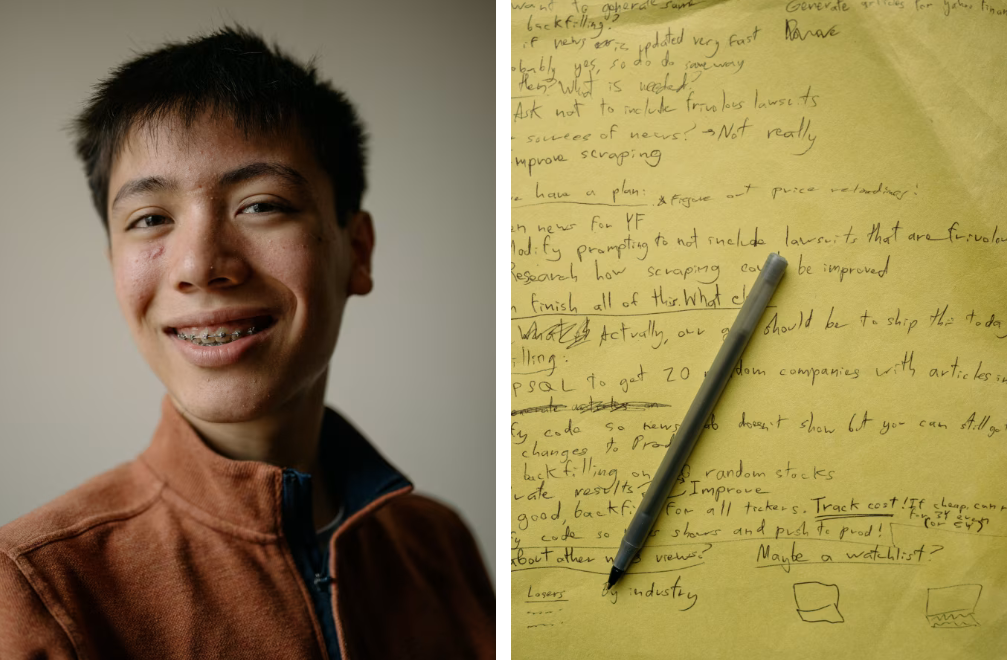 want to generate some
Generate articles for yahoo finan
backfilling?
if news updated very fast
obably yes, so do do same way
then? What is needed?
Ask not to include frivolous lawsuits
sources of news? → Not really
mprove scraping
e have a plan:
* Figure out price
en news for YF
Modify prompting to not include lawsuits that are frivolou
Research how scraping cou be improved
n finish all of this. What
Actually, our g should be to ship this today
illing:
PSQL to get 20 random companies with articles in
fy code so news doesn't show but you can still go
changes to Prod
backfilling on random stocks
uate results Improve
good, backfi for all tickers. Track cost! If cheap, can
y code so shows and push to prod!
about other views?
Maybe a watchlist?
Losers
By industry